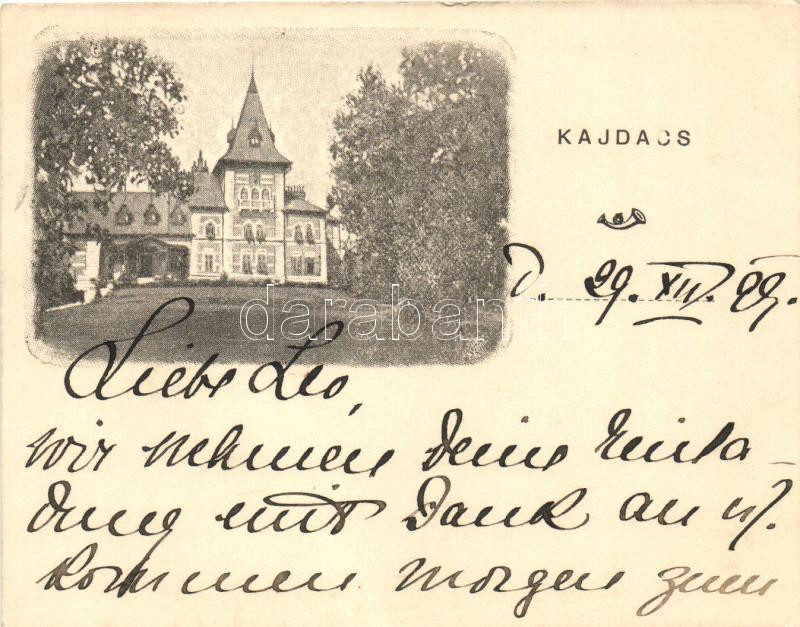 KAJDACS
d. 29. XII. 99.
darabanth
Liebe Leo,
wir nehmen deine Einla-
dung mit Dank an u.
kommen morgen zum